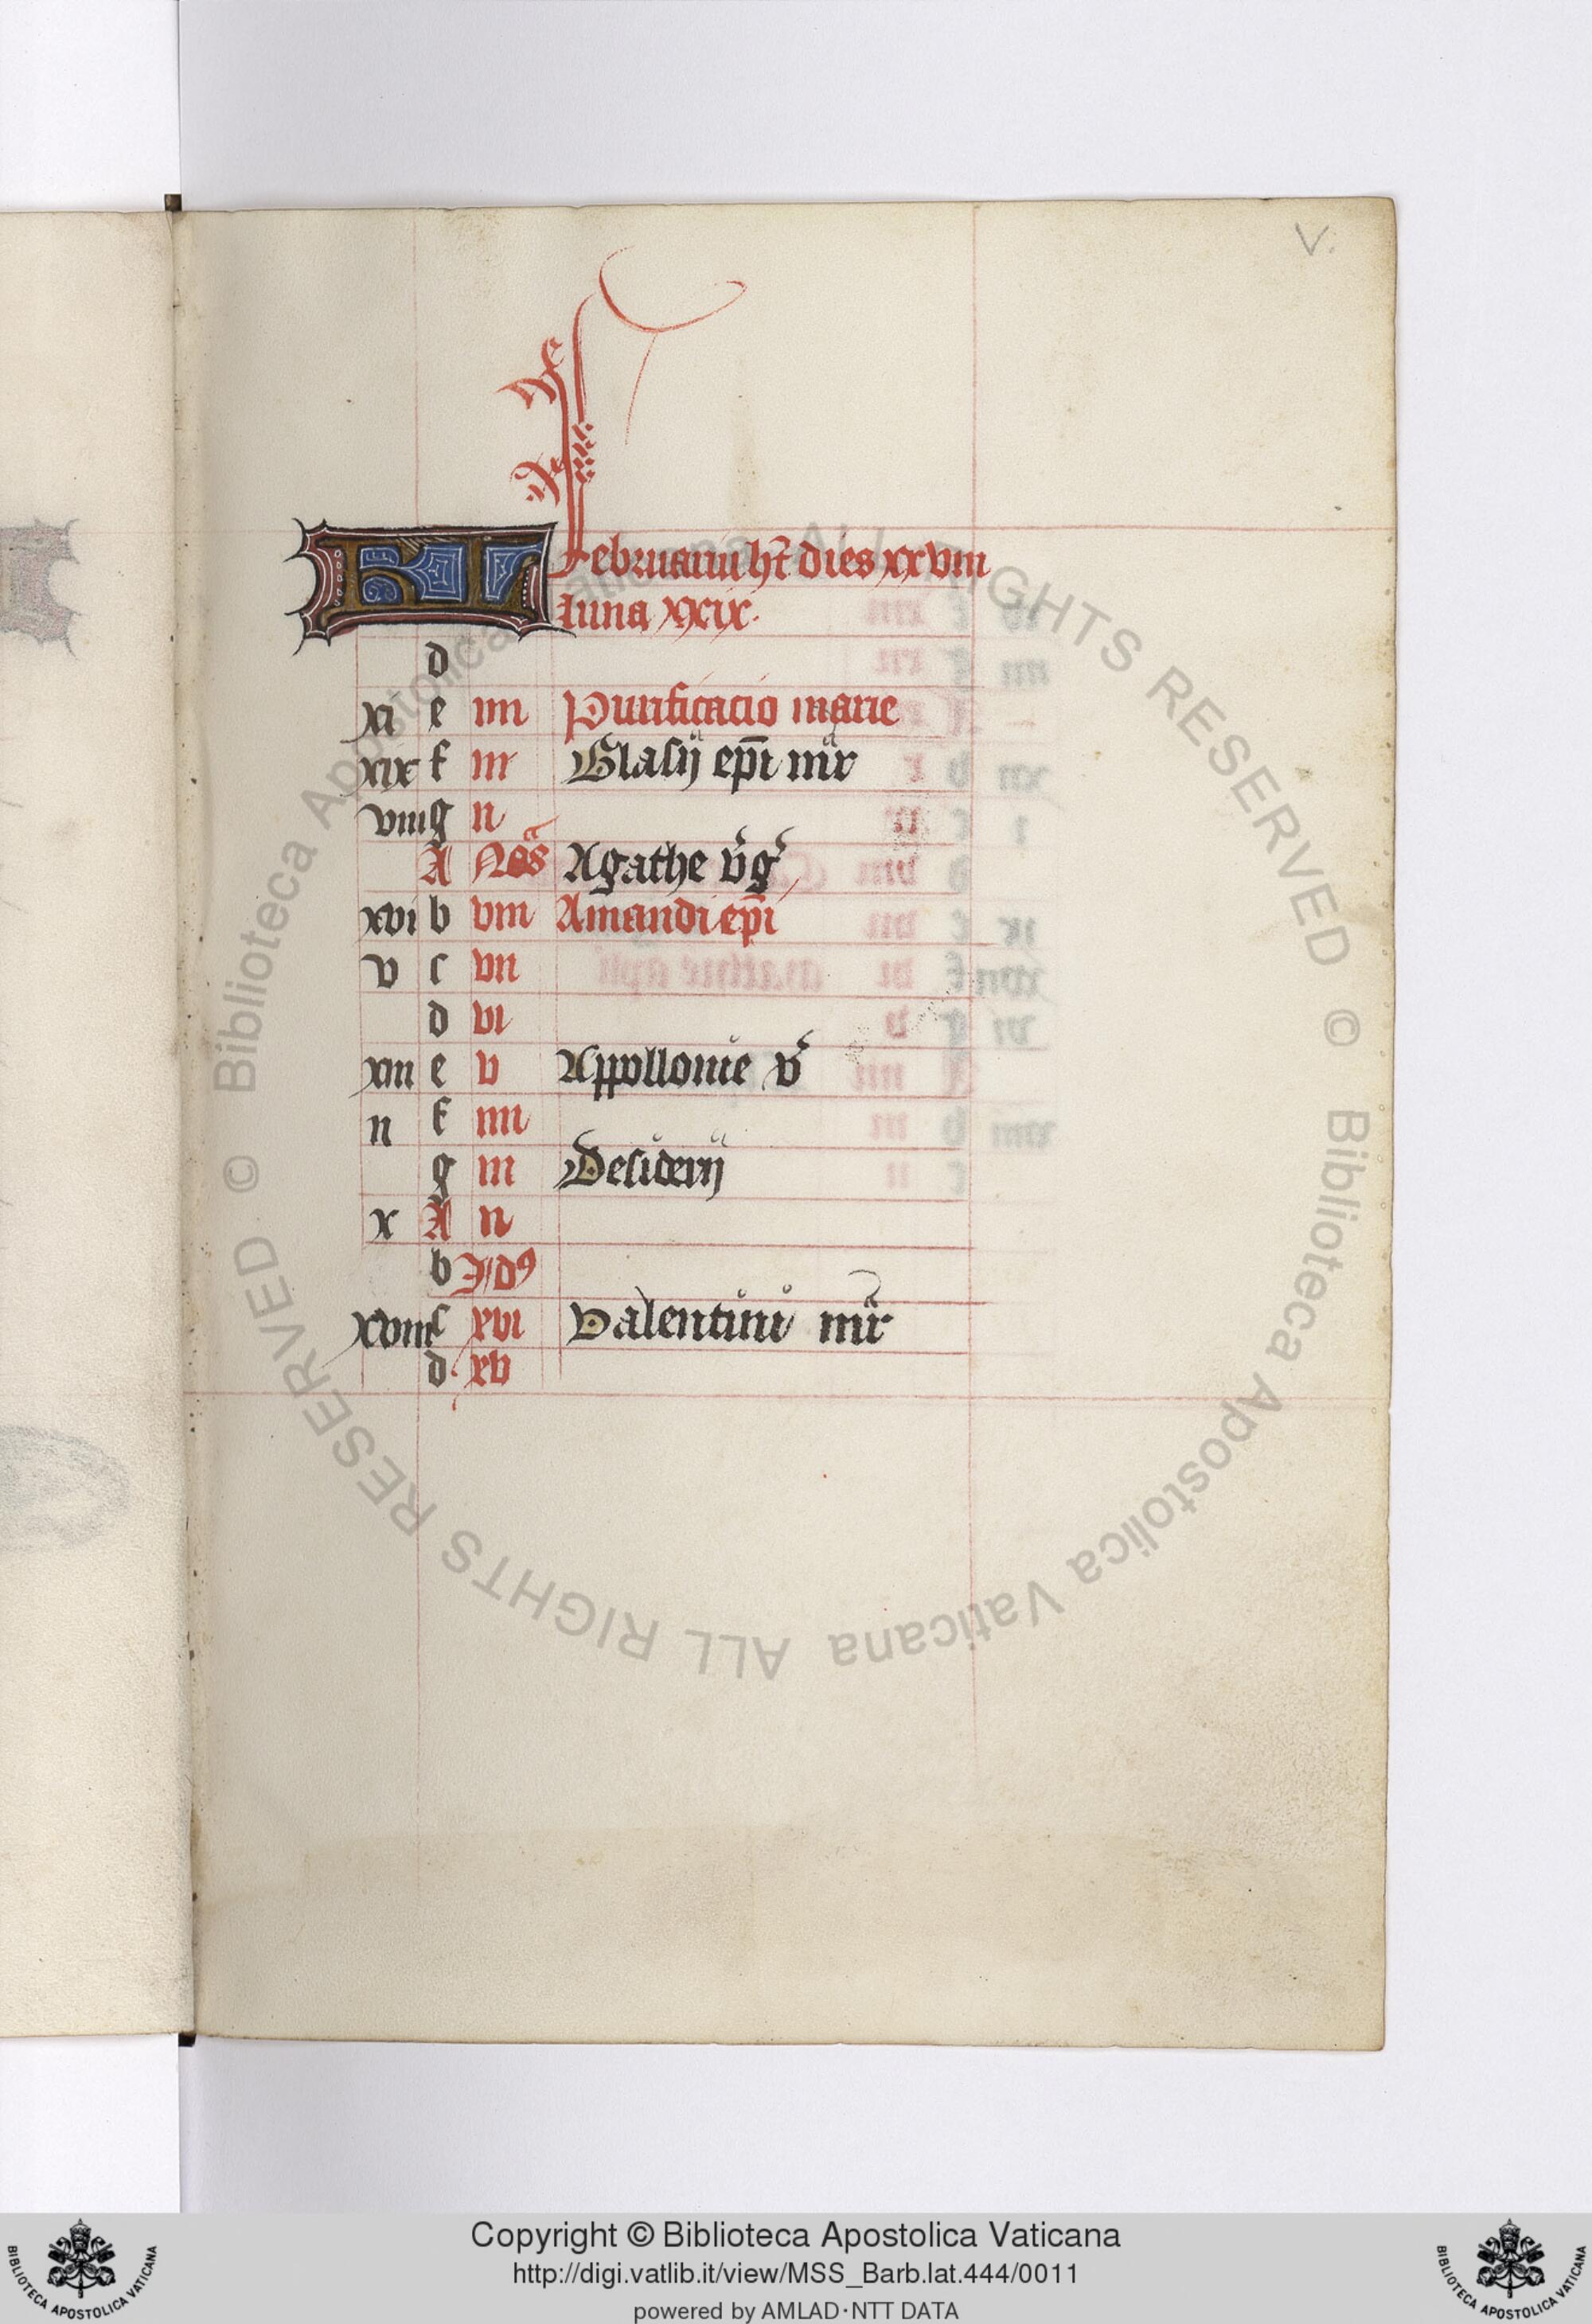 V.
KL Februariu ht dies xxviii
luna xxix.
d
xi e iiii Purificacio marie
xix f iii Blasij epi mr
viii g ii
A Nos Agathe vg
xvi b viii Amandi epi
v c vii
d vi
xiii e v Appollonie v
ii f iiii
g iii Desiderij
x A ii
b Idus
xviii c xvi Valentini mr
d. xv
© Biblioteca Apostolica Vaticana ALL RIGHTS RESERVED © Biblioteca Apostolica Vaticana ALL RIGHTS RESERVED
Copyright © Biblioteca Apostolica Vaticana
http://digi.vatlib.it/view/MSS_Barb.lat.444/0011
powered by AMLAD·NTT DATA
BIBLIOTECA APOSTOLICA VATICANA
BIBLIOTECA APOSTOLICA VATICANA